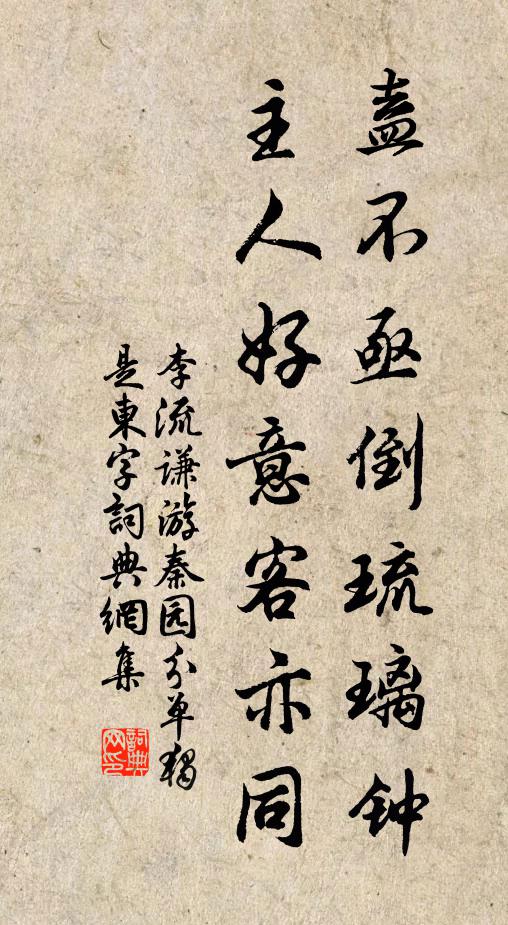 盍不亟倒琉璃钟
主人好意客亦同
李流谦游秦园分单独
是東字詞典網集
詞典網印